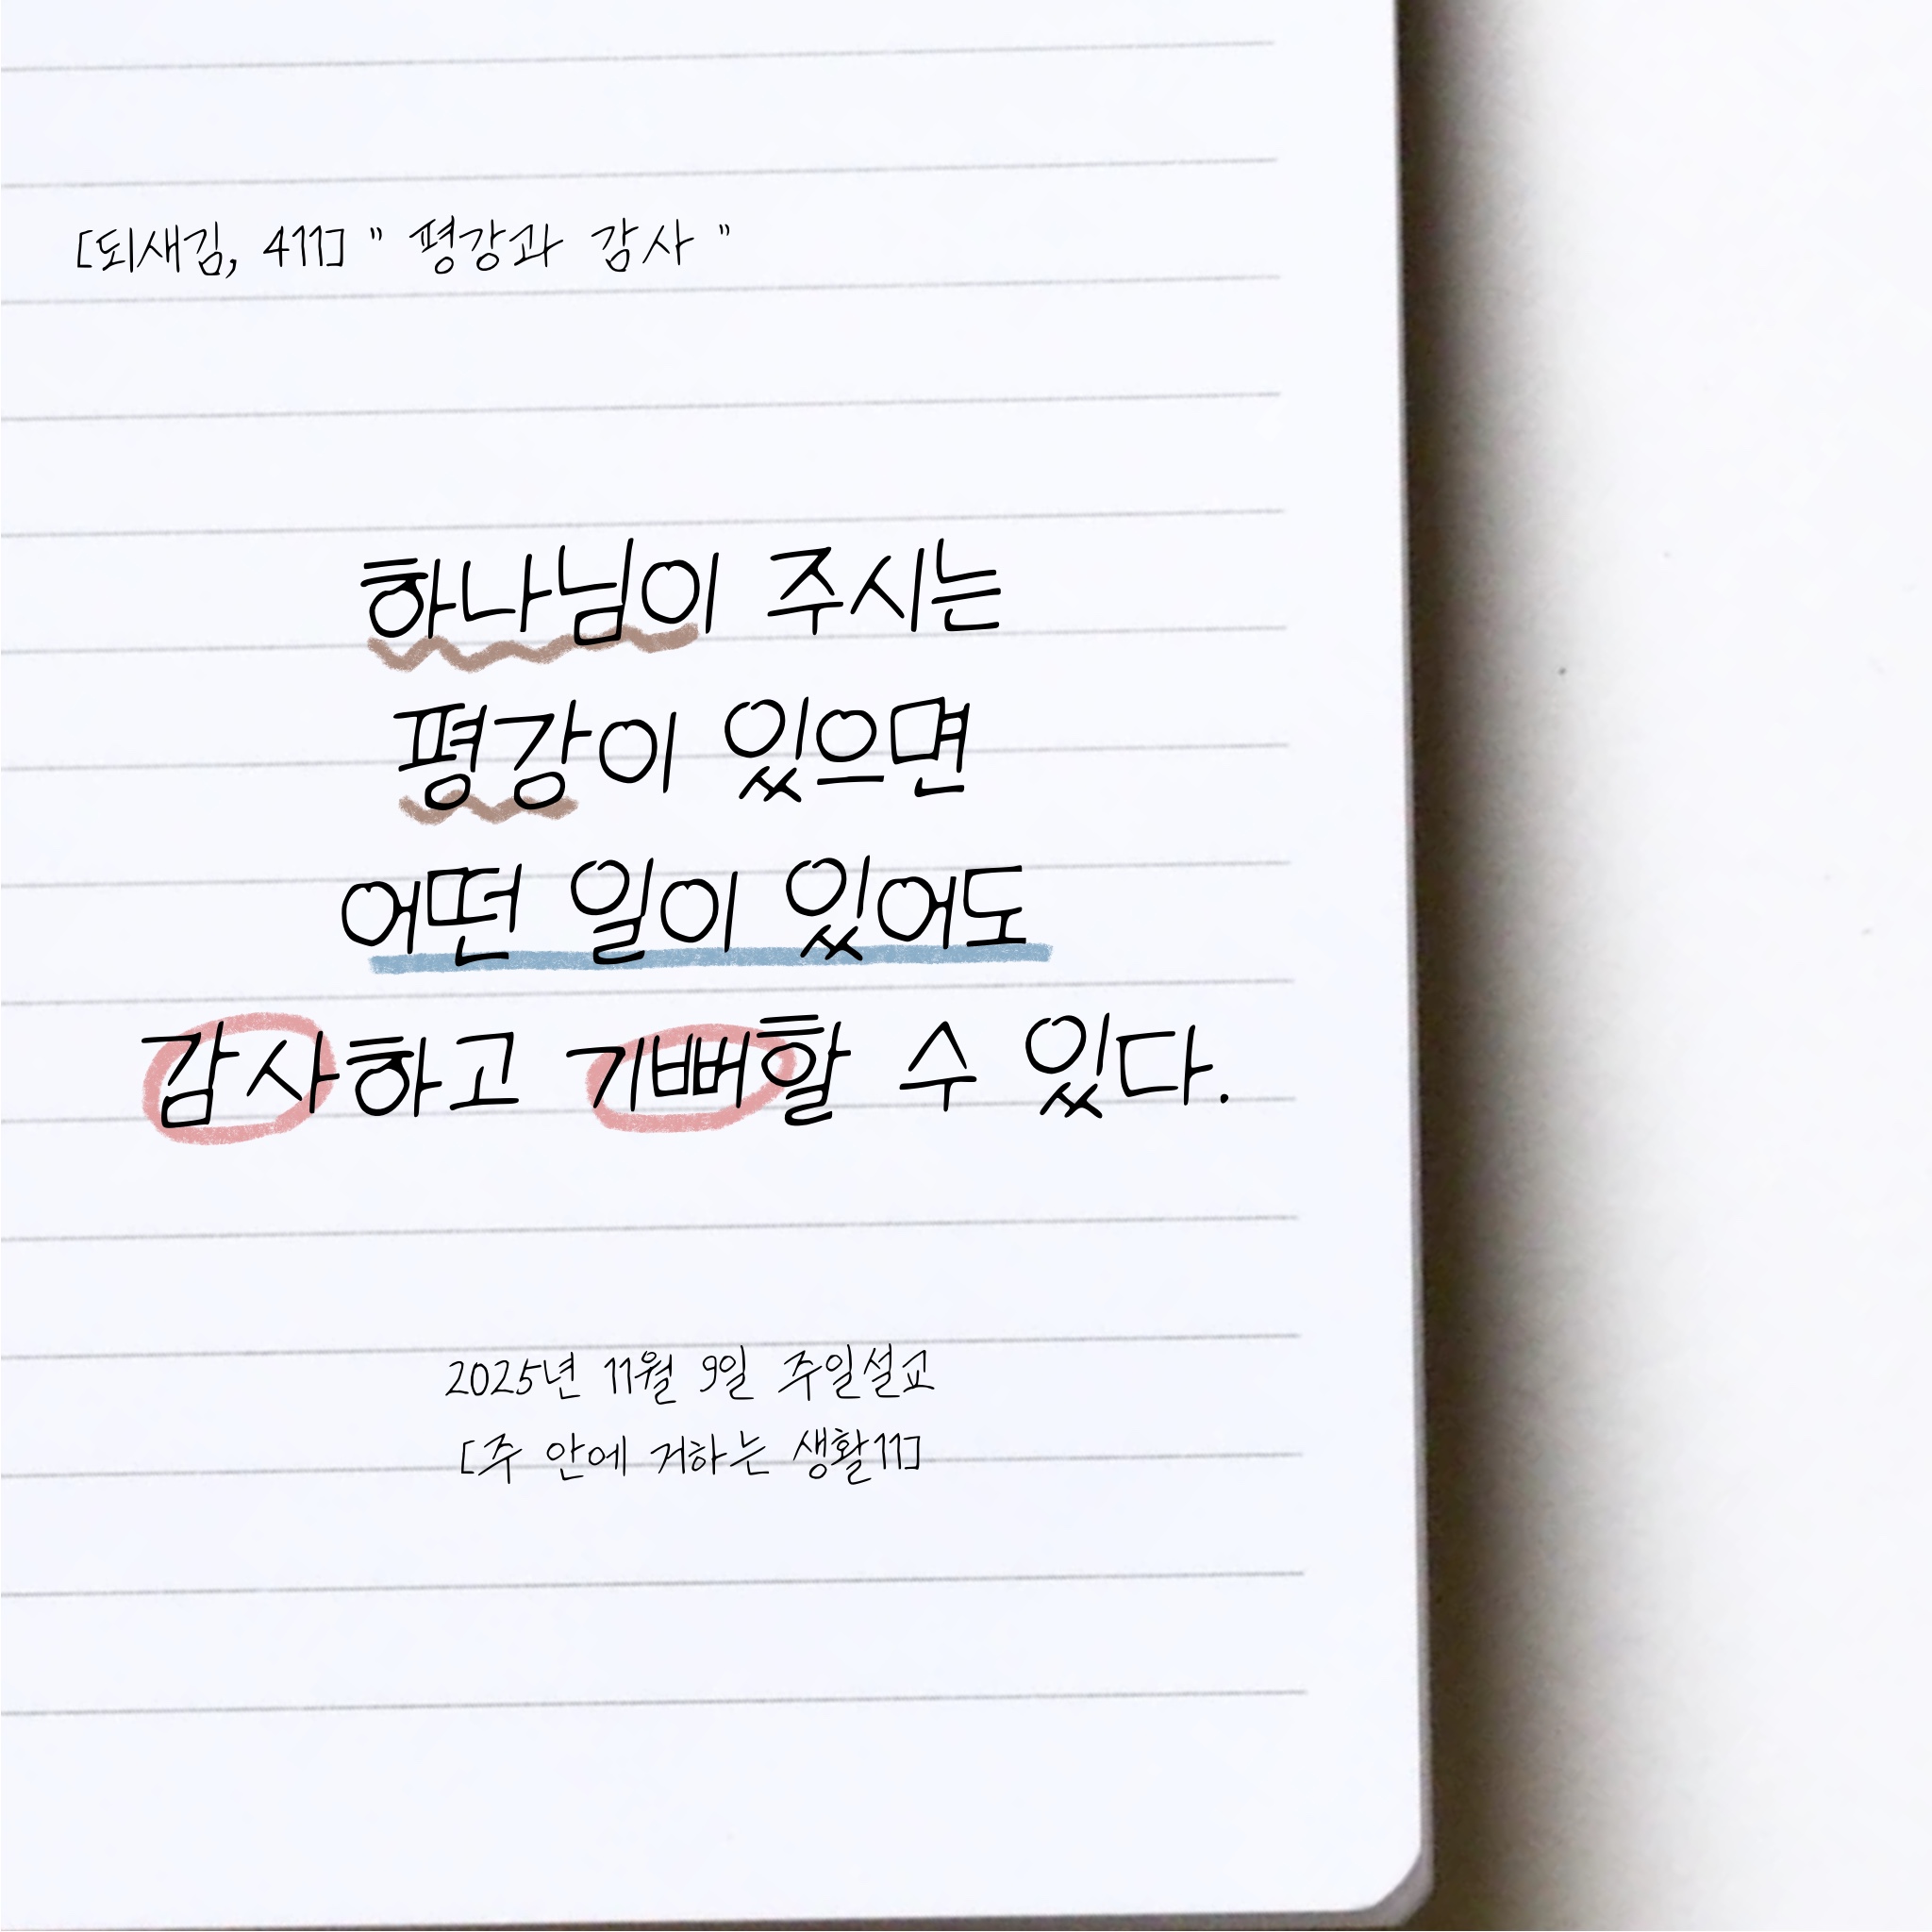 [되새김, 411] " 평강과 감사 "
하나님이 주시는
평강이 있으면
어떤 일이 있어도
감사하고 기뻐할 수 있다.
2025년 11월 9일 주일설교
[주 안에 거하는 생활11]